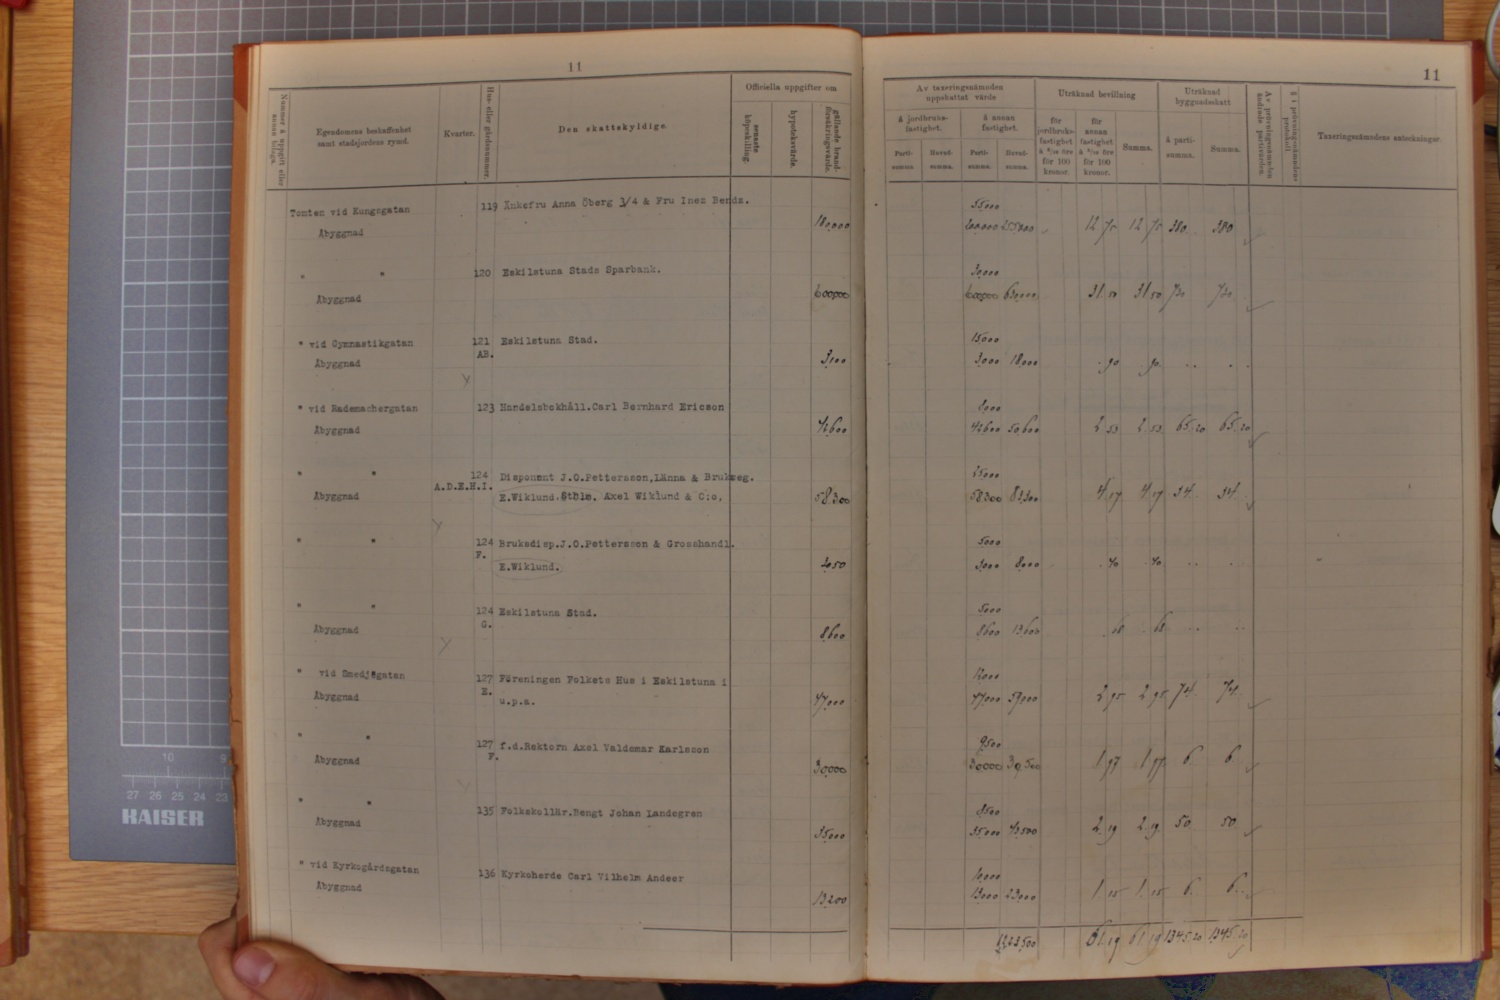 11
Nummer å uppgift eller annan bilaga.
Egendomens beskaffenhet
samt stadsjordens rymd.
Kvarter.
Hus- eller gårdsnummer.
Den skattskyldige.
Officiella uppgifter om
senaste köpeskilling.
hypoteksvärde.
gällande brandförsäkringsvärde.
Tomten vid Kungsgatan 119 Änkefru Anna Öberg 3/4 & Fru Inez Bendz.
Åbyggnad 180,000
" " 120 Eskilstuna Stads Sparbank.
Åbyggnad 600,000
" vid Gymnastikgatan 121 Eskilstuna Stad.
AB.
Åbyggnad 3,100
" vid Rademachergatan 123 Handelsbokhåll.Carl Bernhard Ericson
Åbyggnad 42,600
" " 124 Disponent J.O.Pettersson,Länna & Brukseg.
A.D.E.H.I.
Åbyggnad E.Wiklund.Sthlm. Axel Wiklund & C:o, 58,300
" " 124 Bruksdisp.J.O.Pettersson & Grosshandl.
F.
E.Wiklund.
" " 124 Eskilstuna Stad.
G.
Åbyggnad 8,600
" vid Smedjegatan 127 Föreningen Folkets Hus i Eskilstuna i
E.
Åbyggnad u.p.a. 47,000
" " 127 f.d.Rektorn Axel Valdemar Karlsson
F.
Åbyggnad 30,000
" " 135 Folkskollär.Bengt Johan Landegren
Åbyggnad 35,000
" vid Kyrkogårdsgatan 136 Kyrkoherde Carl Vilhelm Andeer
Åbyggnad 13,200
11
Av taxeringsnämnden
uppskattat värde
å jordbruks-
fastighet.
å annan
fastighet.
Parti-
summa.
Huvud-
summa.
Parti-
summa.
Huvud-
summa.
Uträknad bevillning
för
jordbruks-
fastighet
för 100
kronor.
för
annan
fastighet
för 100
kronor.
Summa.
Uträknad
byggnadsskatt
å parti-
summa.
Summa.
Av prövningsnämnden ändrade partivärden.
§ i prövningsnämndens protokoll
Taxeringsnämndens anteckningar.
55,000
200,000 255,000 12 75 12 75 380 380
30,000
600,000 630,000 31 50 31 50 720 720
15,000
3,000 18,000 90 90
8,000
42,600 50,600 2 53 2 53 65 20 65 20
25,000
58,300 83,300 4 17 4 17 34 34
5,000
3,000 8,000 40 40
5,000
8,600 13,600 68 68
12,000
47,000 59,000 2 95 2 95 74 74
9,500
30,000 39,500 1 97 1 97 6 6
8,500
35,000 43,500 2 19 2 19 50 50
10,000
13,000 23,000 1 15 1 15 6 6
1,223,500 61 19 61 19 1345 20 1345 20
10 9
27 26 25 24 23
KAISER